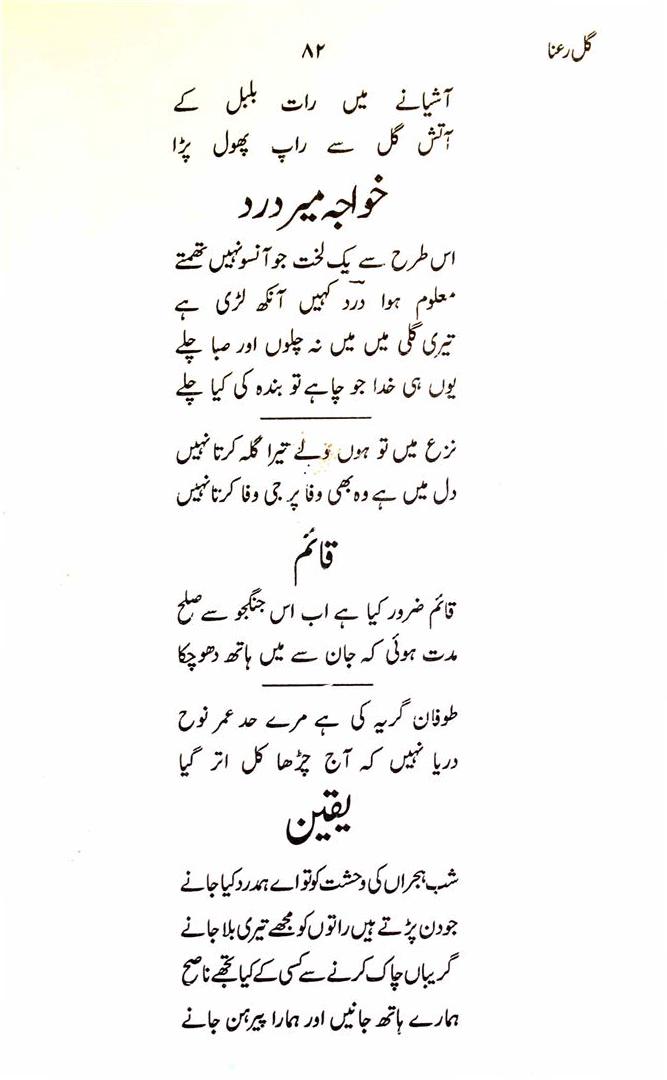 گل رعنا
۸۲
آشیانے میں رات بلبل کے
آتش گل سے راپ پھول پڑا
خواجہ میر درد
اس طرح سے یک لخت جو آنسو نہیں تھمتے
معلوم ہوا درد کہیں آنکھ لڑی ہے
تیری گلی میں میں نہ چلوں اور صبا چلے
یوں ہی خدا جو چاہے تو بندہ کی کیا چلے
نزع میں تو ہوں ولے تیرا گلہ کرتا نہیں
دل میں ہے وہ بھی وفا پر جی وفا کرتا نہیں
قائم
قائم ضرور کیا ہے اب اس جنگجو سے صلح
مدت ہوئی کہ جان سے میں ہاتھ دھو چکا
طوفان گریہ کی ہے مرے حد عمر نوح
دریا نہیں کہ آج چڑھا کل اتر گیا
یقین
شب ہجراں کی وحشت کو تو اے ہمدرد کیا جانے
جو دن پڑتے ہیں راتوں کو مجھے تیری بلا جانے
گریباں چاک کرنے سے کسی کے کیا تجھے ناصح
ہمارے ہاتھ جانیں اور ہمارا پیرہن جانے